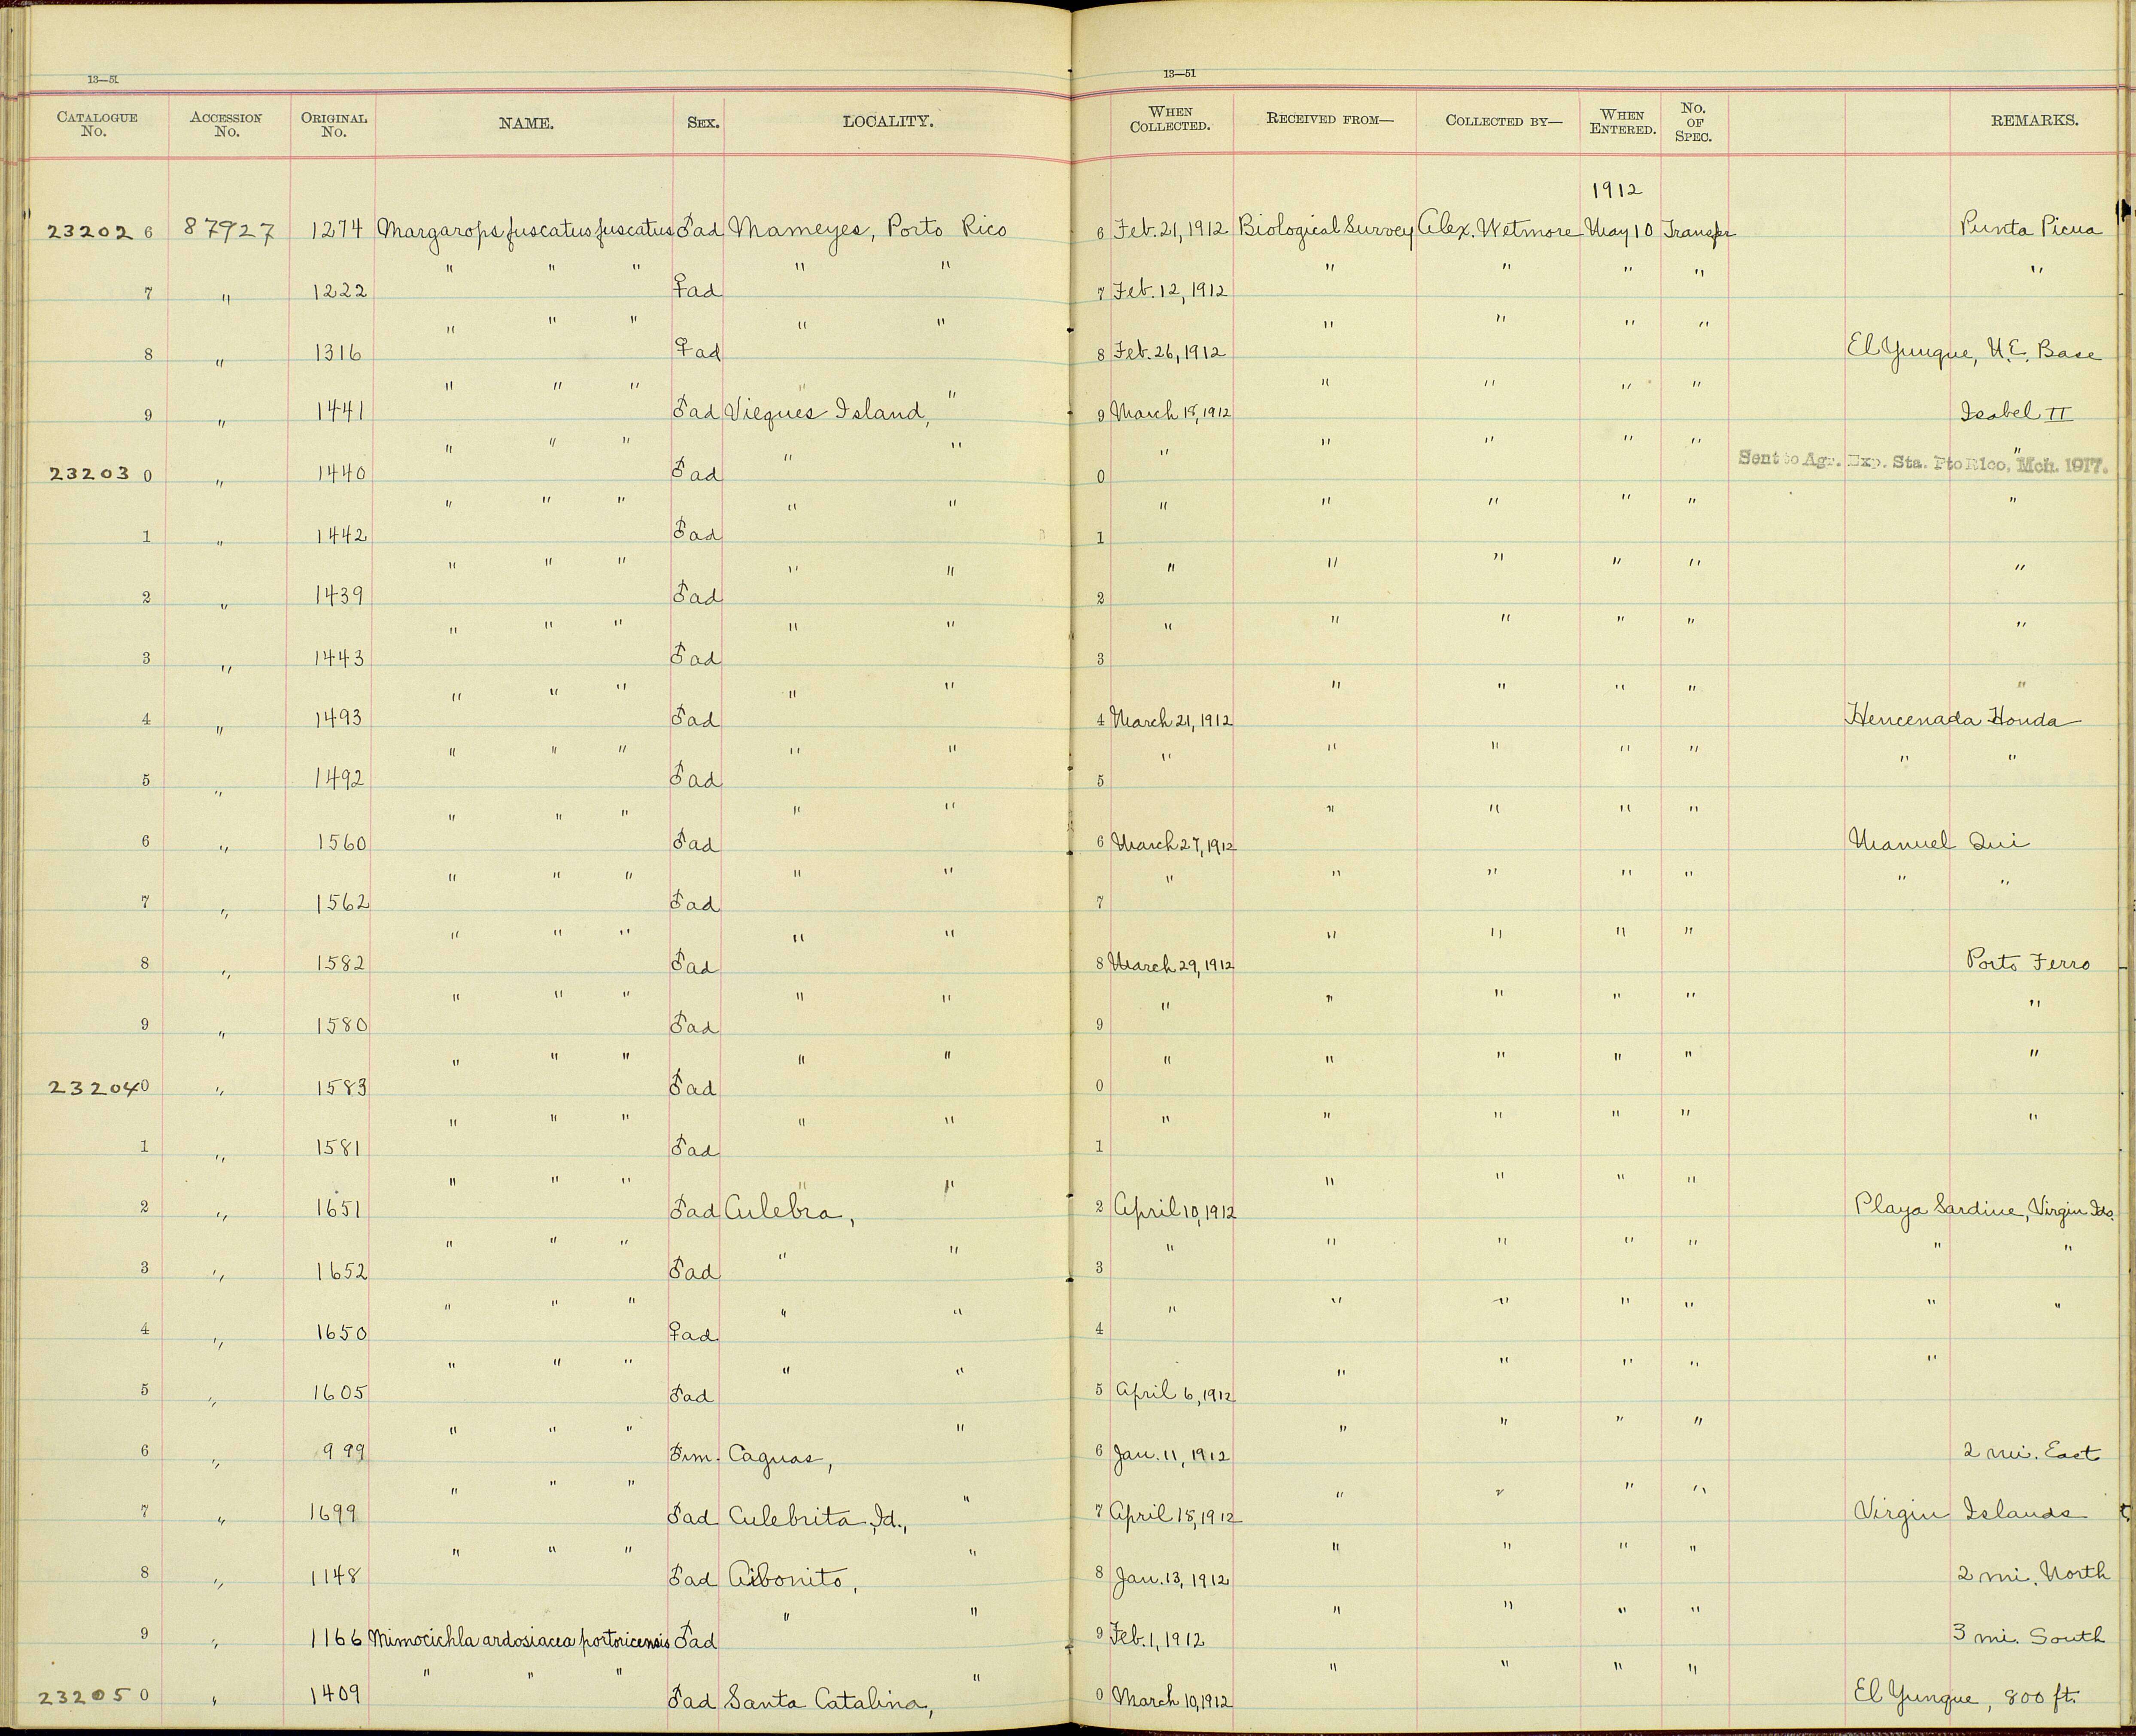 13—51 13—51
CATALOGUE No. ACCESSION No. ORIGINAL No. NAME. SEX. LOCALITY. WHEN COLLECTED. RECEIVED FROM— COLLECTED BY— WHEN ENTERED. No. OF SPEC. REMARKS.
1912
232026 87927 1274 Margarops fuscatus fuscatus ♂ad Mameyes, Porto Rico 6 Feb. 21, 1912 Biological Survey Alex. Wetmore May 10 Transfer Punta Picua
7 " 1222 " " " ♀ad " " 7 Feb. 12, 1912 " " " " "
8 " 1316 " " " ♀ad " " 8 Feb. 26, 1912 " " " " El Yunque, N.E. Base
9 " 1441 " " " ♂ad Vieques Island, " 9 March 18, 1912 " " " " Isabel II
232030 " 1440 " " " ♂ad " " 0 " " " " " " Sent to Agr. Exp. Sta. Pto Rico, Mch. 1917.
1 " 1442 " " " ♂ad " " 1 " " " " " "
2 " 1439 " " " ♂ad " " 2 " " " " " "
3 " 1443 " " " ♂ad " " 3 " " " " " "
4 " 1493 " " " ♂ad " " 4 March 21, 1912 " " " " " Hencenada Honda
5 " 1492 " " " ♂ad " " 5 " " " " " " "
6 " 1560 " " " ♂ad " " 6 March 27, 1912 " " " " Manuel Qui
7 " 1562 " " " ♂ad " " 7 " " " " " " "
8 " 1582 " " " ♂ad " " 8 March 29, 1912 " " " " Porto Ferro
9 " 1580 " " " ♂ad " " 9 " " " " " "
232040 " 1583 " " " ♂ad " " 0 " " " " " "
1 " 1581 " " " ♂ad " " 1 " " " " " "
2 " 1651 " " " ♂ad Culebra, " 2 April 10, 1912 " " " " Playa Sardine, Virgin Ids.
3 " 1652 " " " ♂ad " " 3 " " " " " " "
4 " 1650 " " " ♀ad " " 4 " " " " " " "
5 " 1605 " " " ♂ad " " 5 April 6, 1912 " " " " "
6 " 999 " " " ♂im. Caguas, " 6 Jan. 11, 1912 " " " " 2 mi. East
7 " 1699 " " " ♂ad Culebrita Id., " 7 April 18, 1912 " " " " Virgin Islands
8 " 1148 " " " ♂ad Aibonito, " 8 Jan. 13, 1912 " " " " 2 mi. North
9 " 1166 Mimocichla ardosiacea portoricensis ♂ad " " 9 Feb. 1, 1912 " " " " 3 mi. South
232050 " 1409 " " " ♂ad Santa Catalina, " 0 March 10, 1912 " " " " El Yunque, 800 ft.